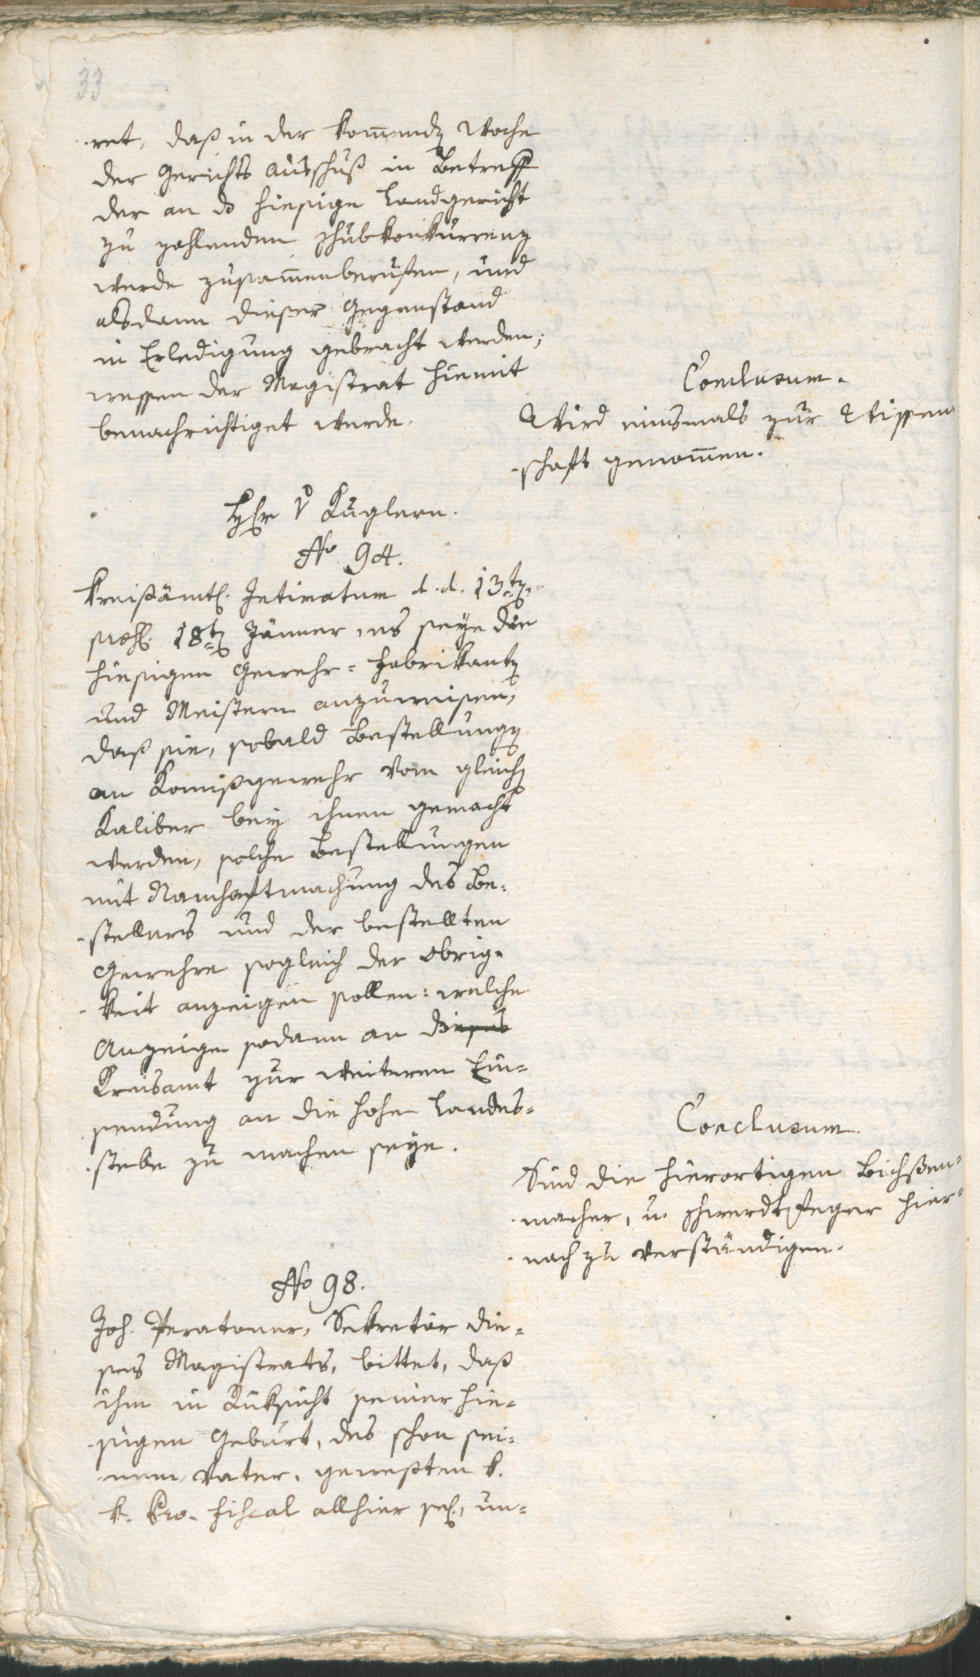 33
ret, daß in der kom̄endẽ Woche
der Gerichts Ausschuß in Betreff
der an dß hiesige Landgericht
zu zahlenden Schubkonkurrenz
werde zusam̄enberufen, und
alsdann dieser Gegenstand
in Erledigung gebracht werden;
wessen der Magistrat hiemit
benachrichtiget werde.
Conclusum.
Wird einsmals zur Wissen
schaft genom̄en.
H[er]r v Kuglern.
No 94.
Kreisämtl. Intimatum d. d. 13tẽ
præs. 18tẽ Jänner, es seye den
hiesigen Gewehr-Fabrikantẽ
und Meistern anzuweisen,
daß sie, sobald Bestellungẽ
an Komißgewehr vom gleichẽ
Kaliber bey ihnen gemacht
werden, solche Bestellungen
mit Namhaftmachung des Be-
stellers und der bestellten
Gewehre sogleich der Obrig-
keit anzeigen sollen: welche
Anzeige sodann an dieses
Kreisamt zur weiteren Ein-
sendung an die hohe Landes-
stelle zu machen seye.
Conclusum.
Sind die hierortigen Bichsen-
macher, u. Schwerdtfeger hier-
nach zu verständigen.
No 98.
Joh. Peratoner, Sekretär die-
ses Magistrats, bittet, daß
ihm in Rüksicht seiner hie-
sigen Geburt, des schon sei-
nem Vater, gewesten k.
k. Pro-Fiscal allhier sel., un-